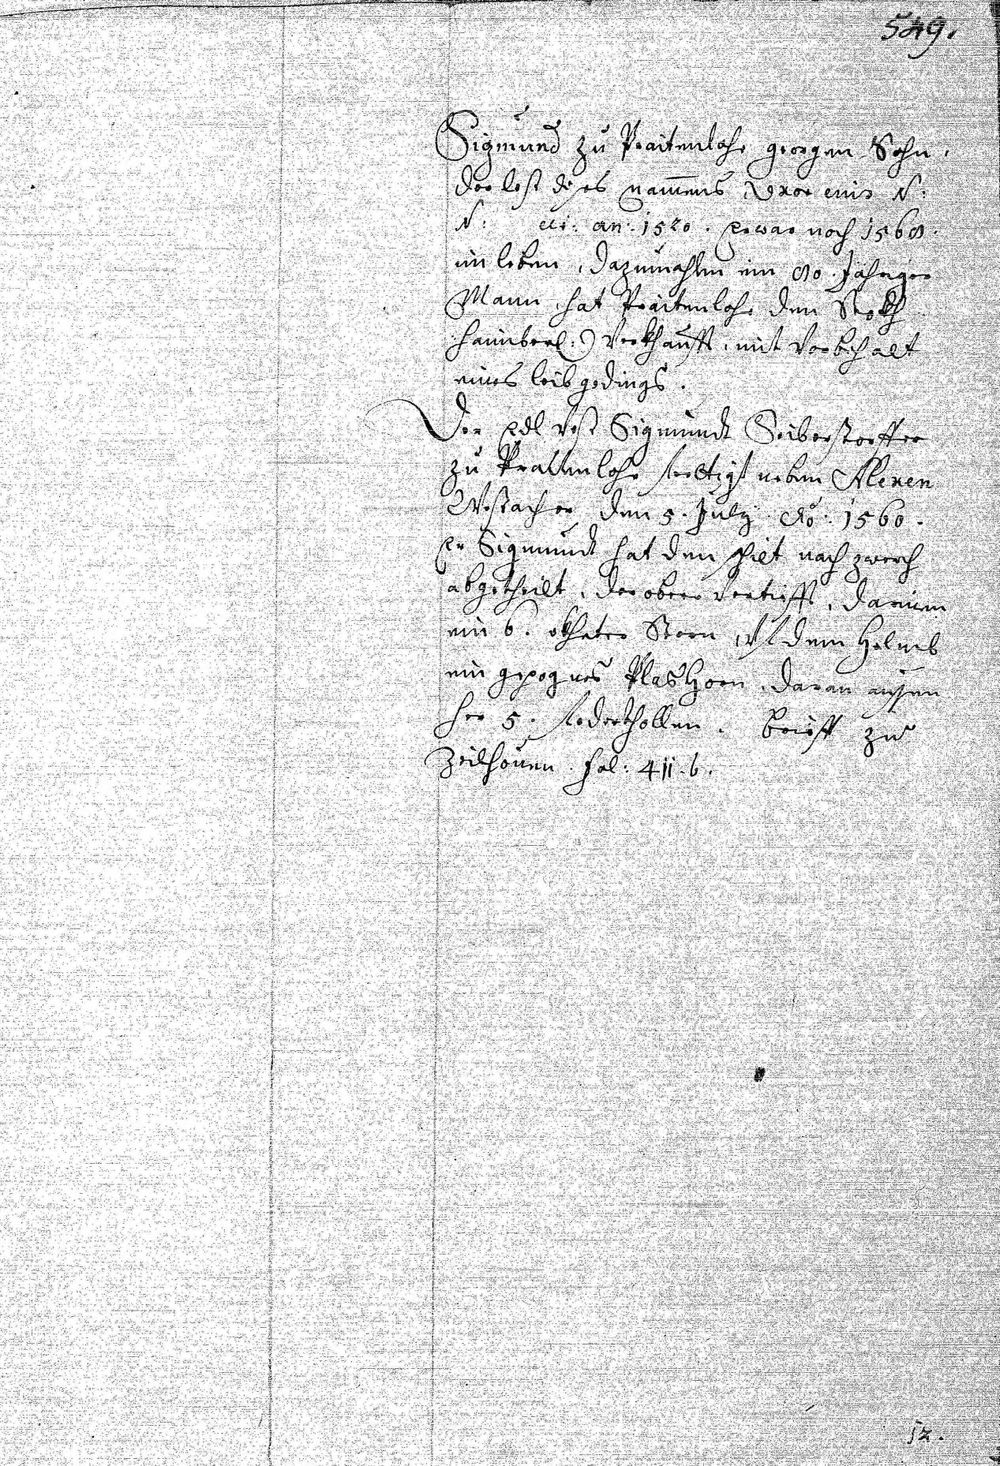 549.
Sigmund zu Praitenlohe georgen Sohn,
der lest dises namens Vxor eius N:
N: etc: an: 1520. er war noch 1568.
im leben, dazumahlen ein 80. Jähriger
Mann, hat Praitenlohe den
verkhaufft, mit Vorbehalt
eines leibgedings.
Der Edl Vest Sigmundt Seiberstorffer
zu Praitenlohe ferttigt neben Alexen
den 5. July Ao: 1560.
Er Sigmundt hat den schilt nach zwerch
abgetheilt, der ober vertiefft, darinn
ein 6. ekheter Stern, vf dem Helmb
ein gepognes Plashorn, daran aussen
her 5. federkhollen. brieff zu
Zeilhouen. fol: 411. b.
12.